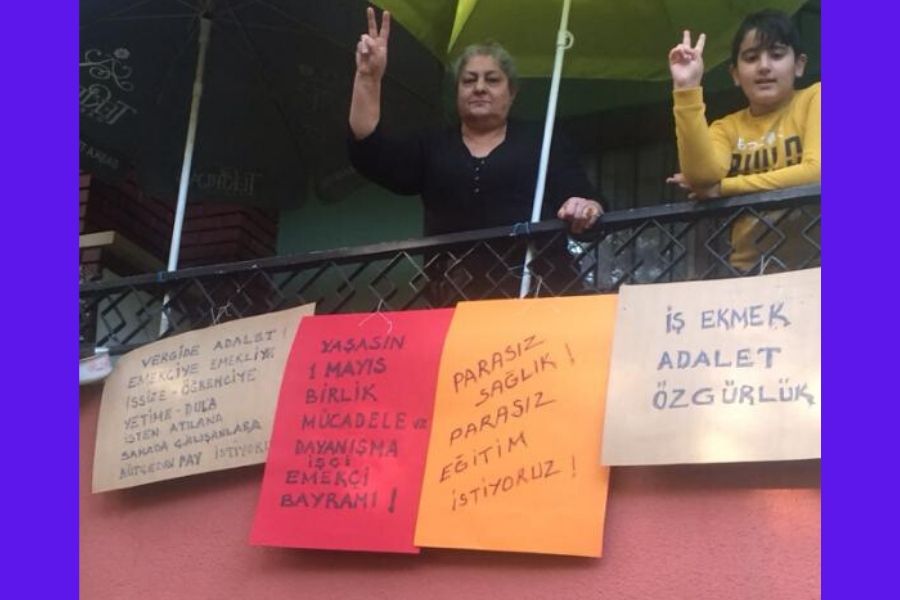 VERGİDE ADALET!
EMEKÇİYE EMEKLİYE
İŞSİZE - ÖĞRENCİYE
YETİME - DULA
İŞTEN ATILANA
SAHADA ÇALIŞANLARA
BÜTÇEDEN PAY İSTİYORUZ
YAŞASIN
1 MAYIS
BİRLİK
MÜCADELE ve
DAYANIŞMA
İŞÇİ
EMEKÇİ
BAYRAMI!
PARASIZ
SAĞLIK!
PARASIZ
EĞİTİM
İSTİYORUZ!
İŞ EKMEK
ADALET
ÖZGÜRLÜK
BUILD